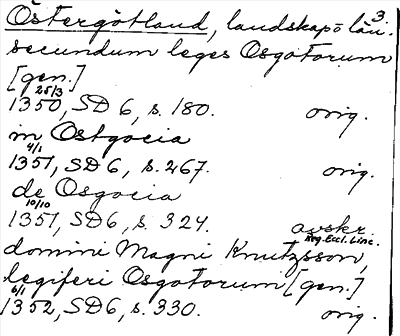 3.
Östergötland, landskap o län.
secundum leges Osgotorum
[gen.]
25/3
1350, SD 6, s. 180. orig.
in Ostgocia
4/1
1351, SD 6, s. 267. orig.
de Osgocia
10/10
1351, SD 6, s. 324. avskr.
Reg. Eccl. Linc.
domini Magni Knutzsson,
legiferi Osgotorum [gen.]
6/1
1352, SD 6, s. 330. orig.